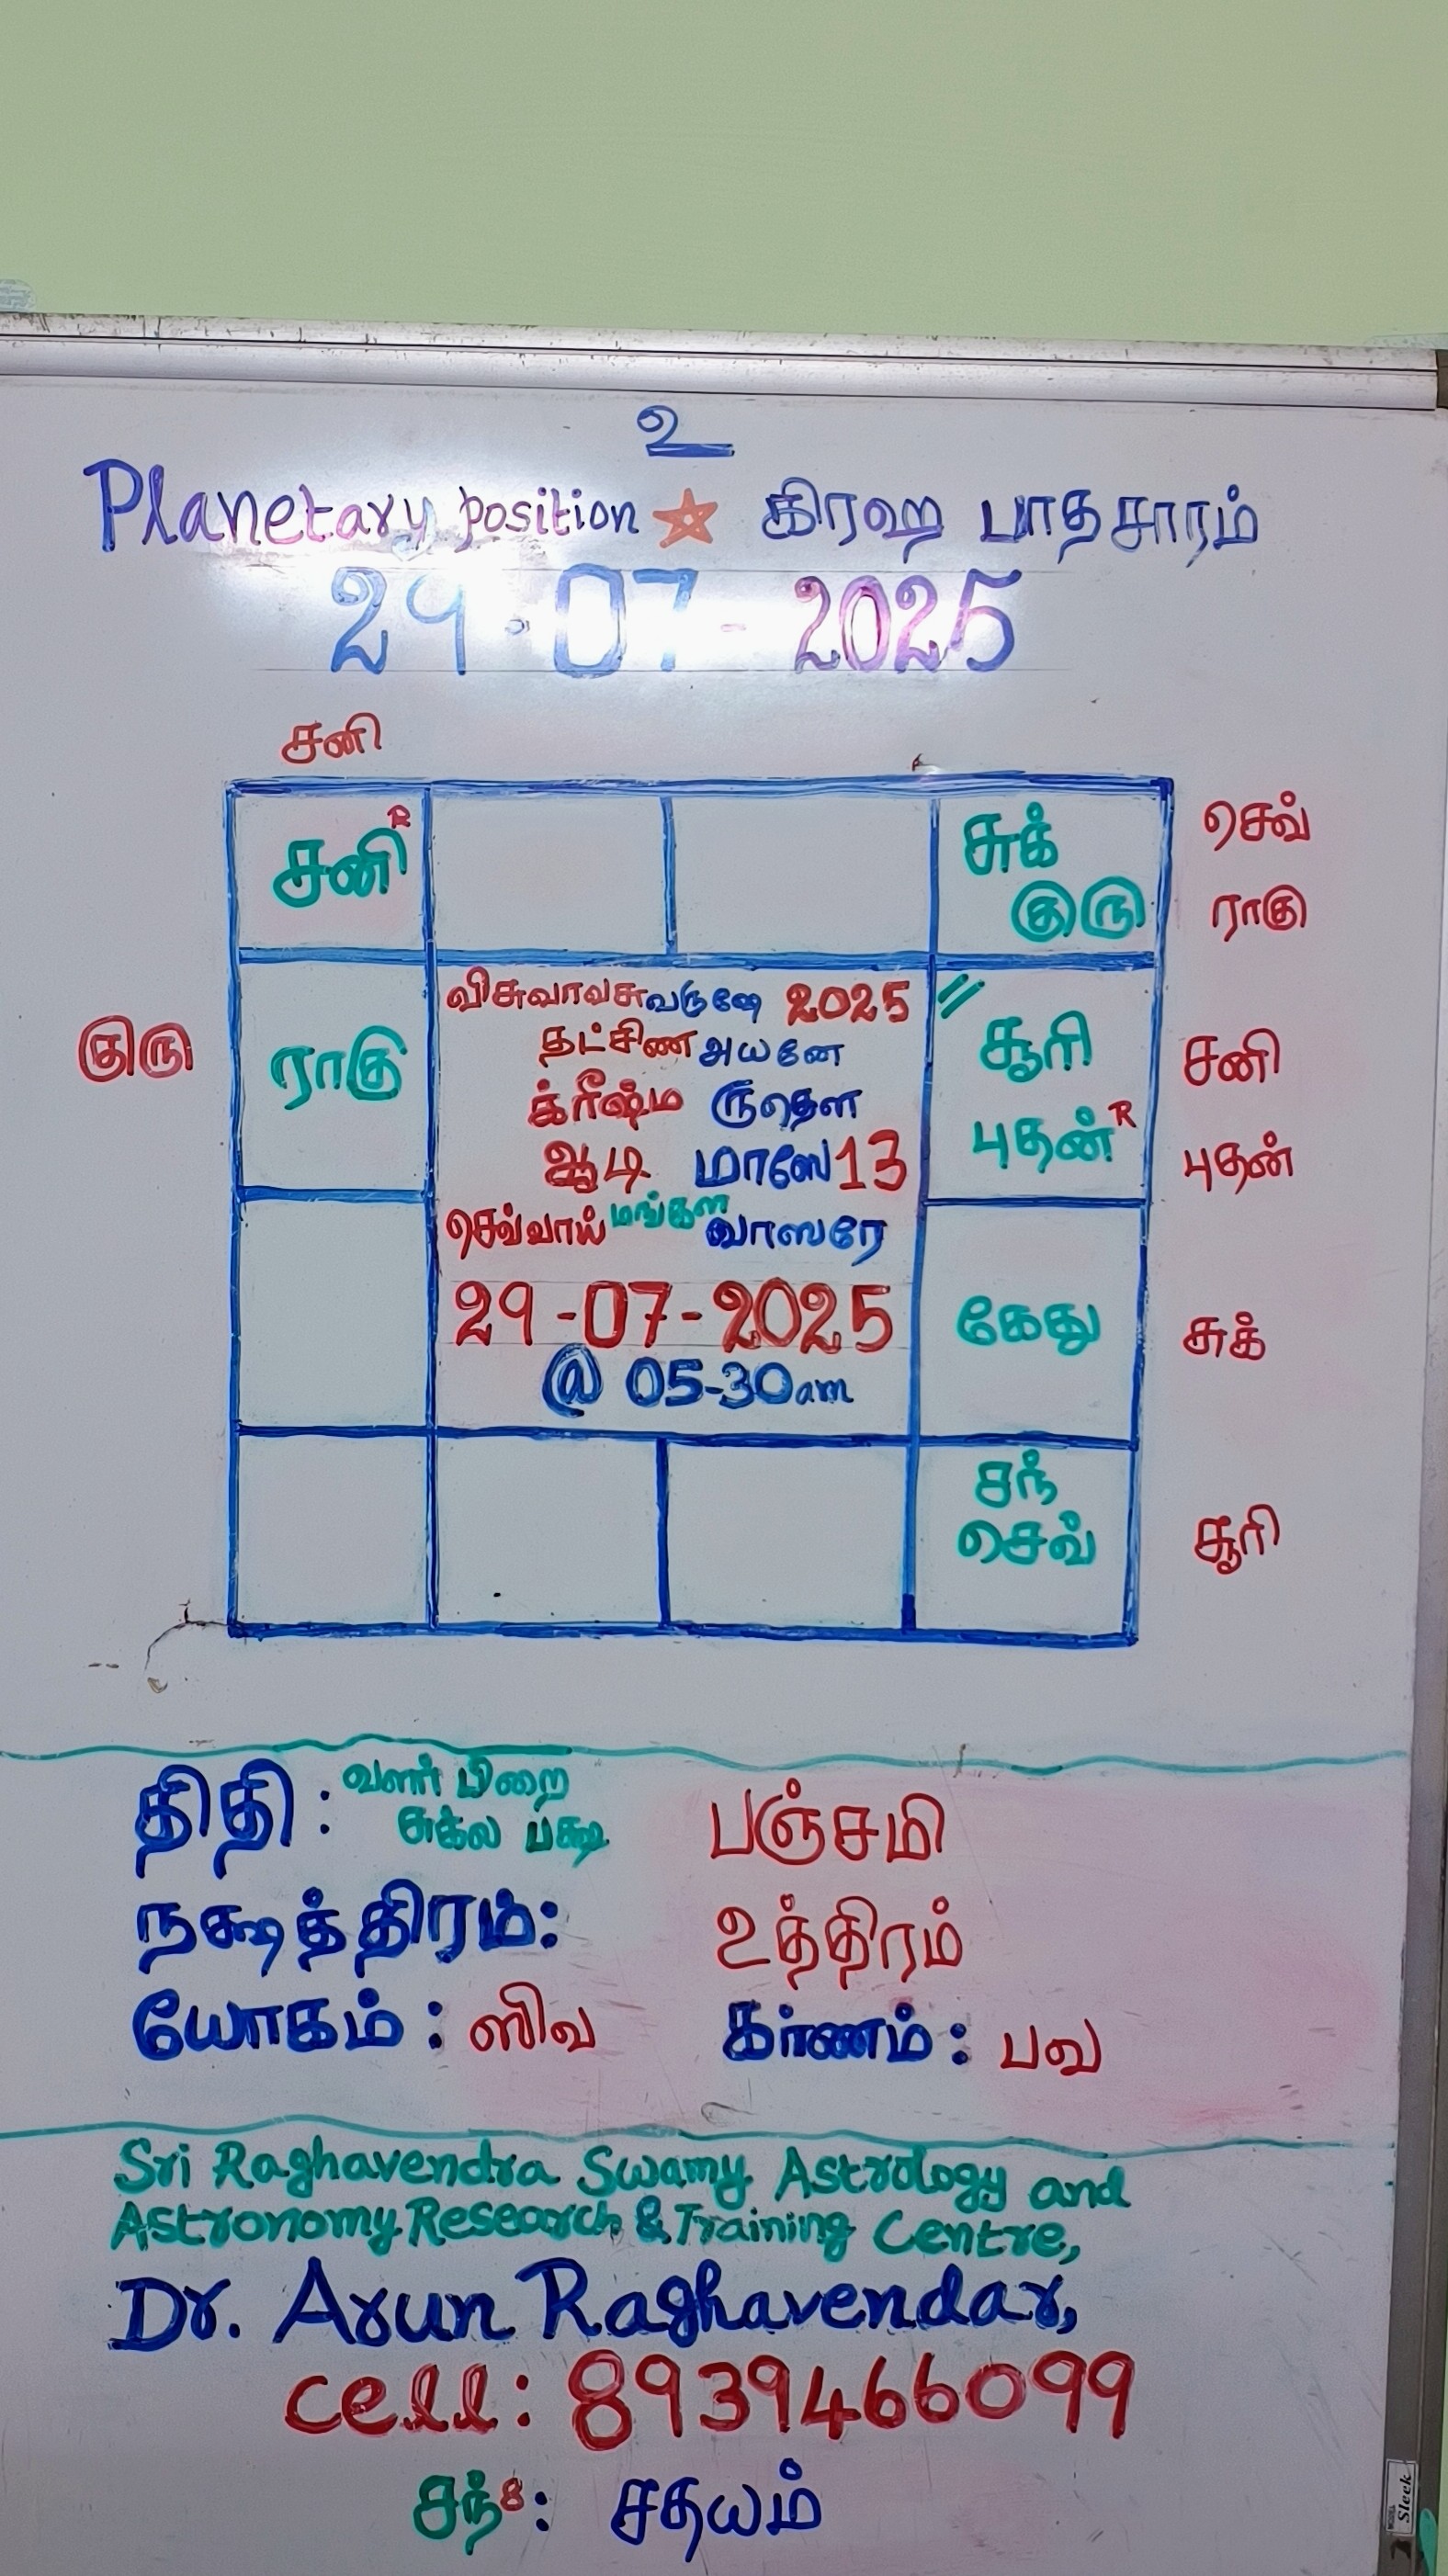 உ
Planetary position ☆ கிரஹ பாதசாரம்
29-07-2025
சனி
சனி R
சுக்
குரு
செவ்
ராகு
குரு
ராகு
விசுவாவசுவருஷே 2025
தட்சிண அயனே
க்ரீஷ்ம ருதௌ
ஆடி மாஸே 13
செவ்வாய் மங்கள வாஸரே
29-07-2025
@ 05-30am
சூரி
புதன் R
சனி
புதன்
கேது
சுக்
சந்
செவ்
சூரி
திதி : வளர் பிறை
சுக்ல பக்ஷ
பஞ்சமி
நக்ஷத்திரம்: உத்திரம்
யோகம் : ஸிவ கர்ணம் : பவ
Sri Raghavendra Swamy Astrology and
Astronomy Research & Training Centre,
Dr. Arun Raghavendar,
cell: 8939466099
சந் 8 : சதயம்
Sleek